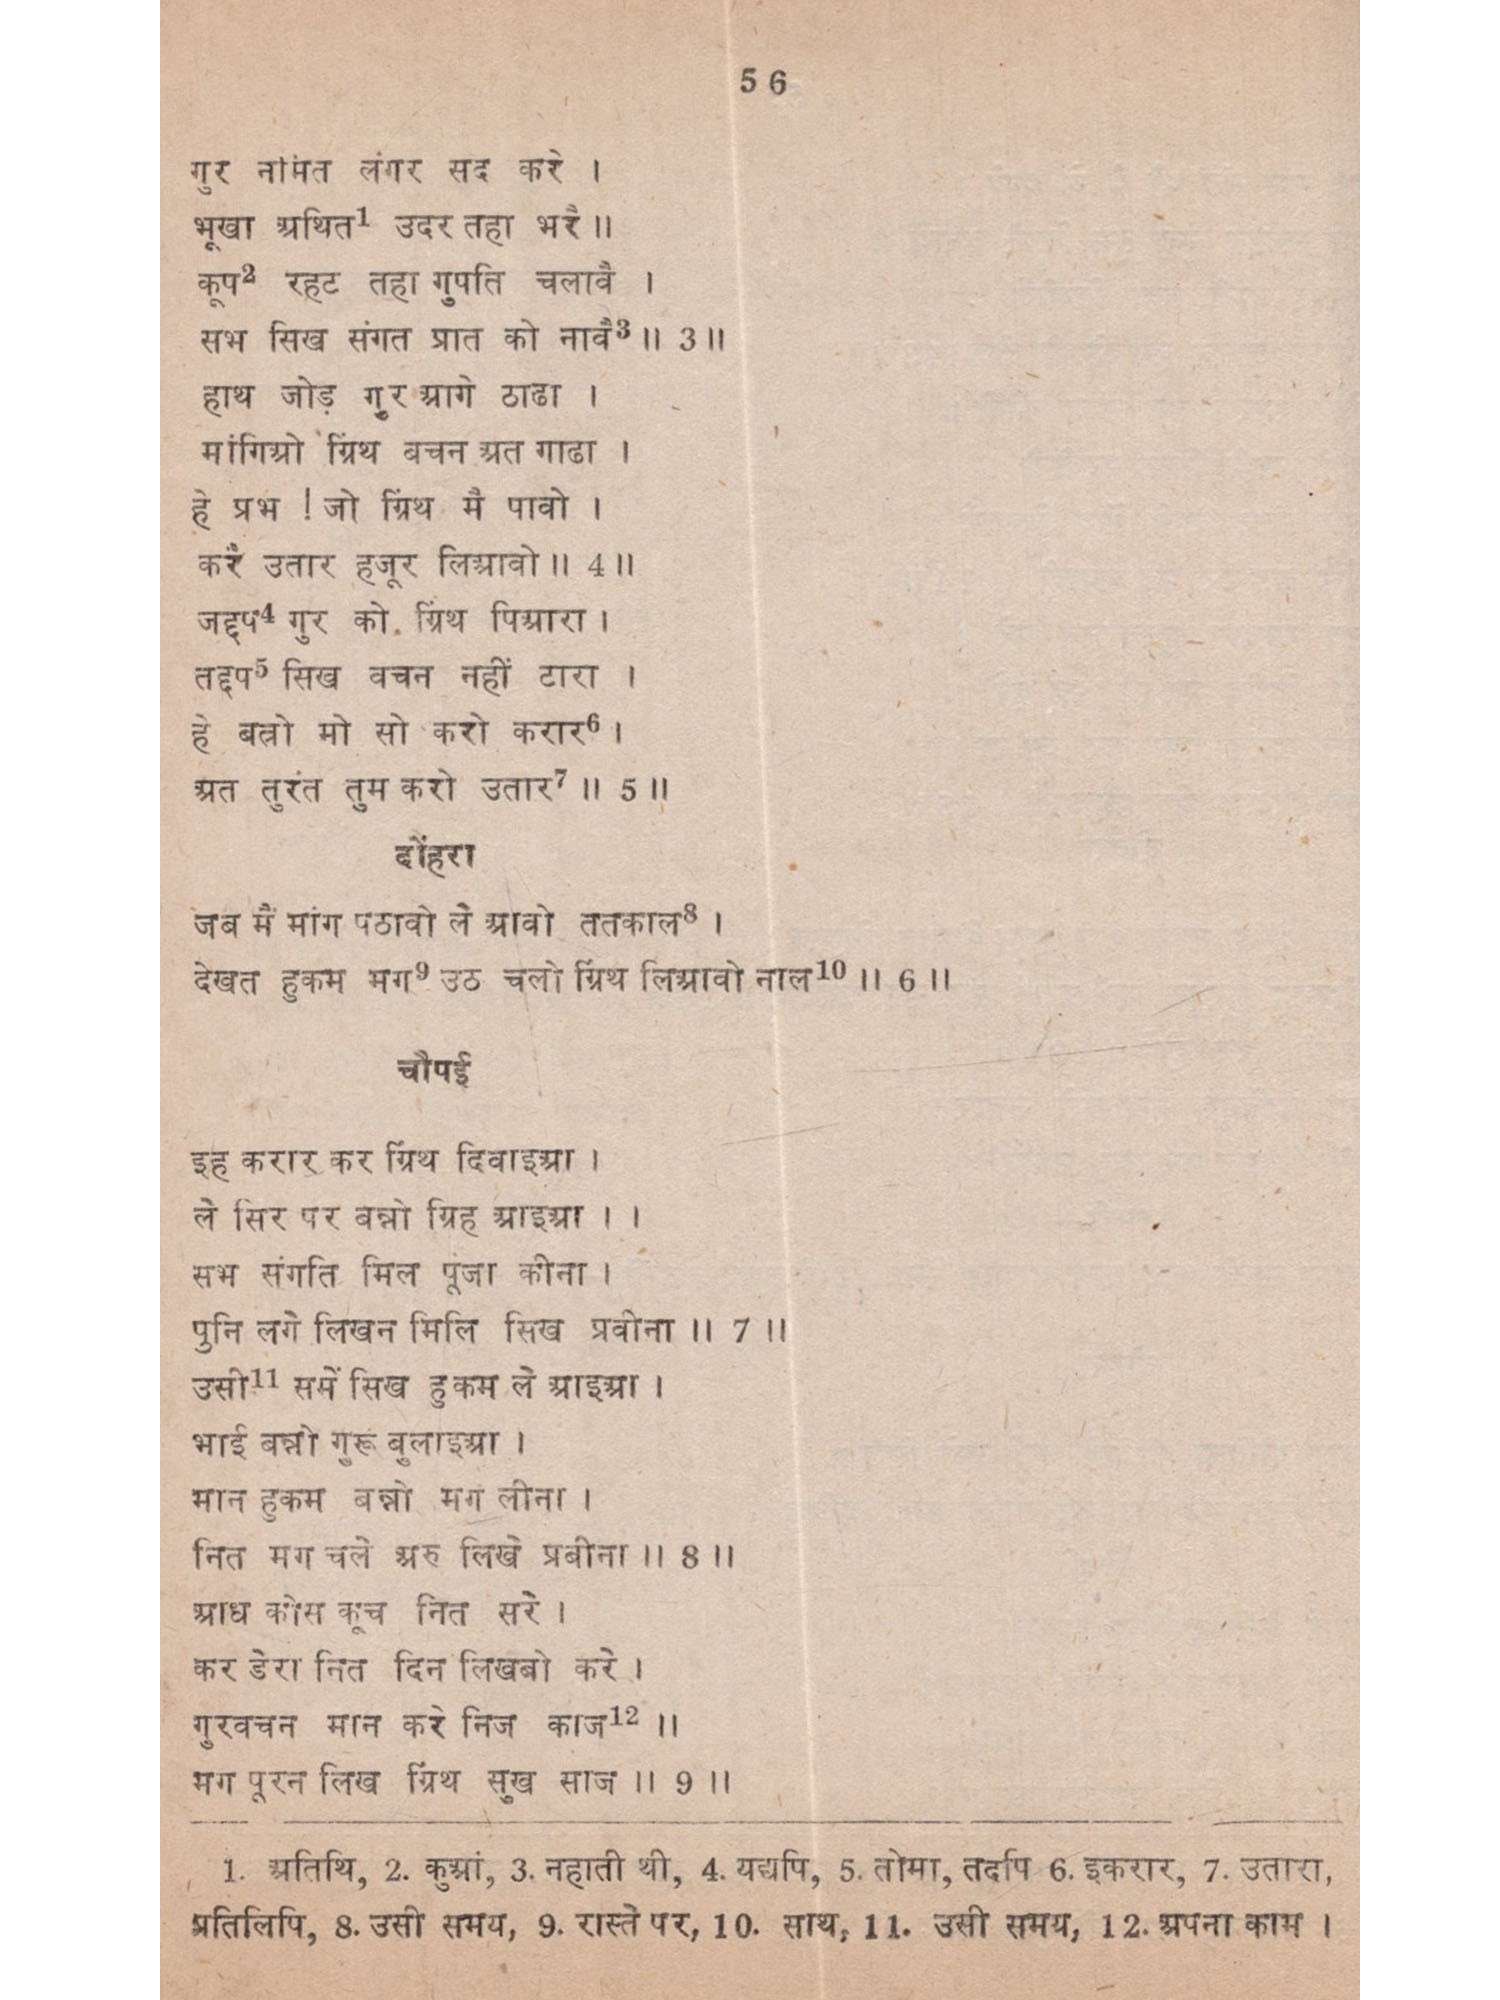 56
गुर नमित लंगर सद करे ।
भूखा अथित1 उदर तहा भरै ॥
कूप2 रहट तहा गुपति चलावै ।
सभ सिख संगत प्रात को नावै3 ॥ 3 ॥
हाथ जोड़ गुर आगे ठाढा ।
मांगिओ ग्रिंथ बचन अत गाढा ।
हे प्रभ ! जो ग्रिंथ मैं पावो ।
करैं उतार हजूर लिआवो ॥ 4 ॥
जद्दप4 गुर को ग्रिंथ पिआरा ।
तद्दप5 सिख वचन नहीं टारा ।
हे बन्नो मो सो करो करार6 ।
अत तुरंत तुम करो उतार7 ॥ 5 ॥
दोंहरा
जब मैं मांग पठावो ले आवो ततकाल8 ।
देखत हुकम मग9 उठ चलो ग्रिंथ लिआवो नाल10 ॥ 6 ॥
चौपई
इह करार कर ग्रिंथ दिवाइआ ।
ले सिर पर बन्नो ग्रिह आइआ । ।
सभ संगति मिल पूजा कीना ।
पुनि लगे लिखन मिलि सिख प्रवीना ॥ 7 ॥
उसी11 समें सिख हुकम ले आइआ ।
भाई बन्नो गुरू बुलाइआ ।
मान हुकम बन्नो मग लीना ।
नित मग चले अरु लिखे प्रबीना ॥ 8 ॥
आध कोस कूच नित सरे ।
कर डेरा नित दिन लिखबो करे ।
गुरवचन मान करे निज काज12 ॥
मग पूरन लिख ग्रिंथ सुख साज ॥ 9 ॥
1. अतिथि, 2. कुआं, 3. नहाती थी, 4. यद्यपि, 5. तोमा, तदपि 6. इकरार, 7. उतारा,
प्रतिलिपि, 8. उसी समय, 9. रास्ते पर, 10. साथ, 11. उसी समय, 12. अपना काम ।